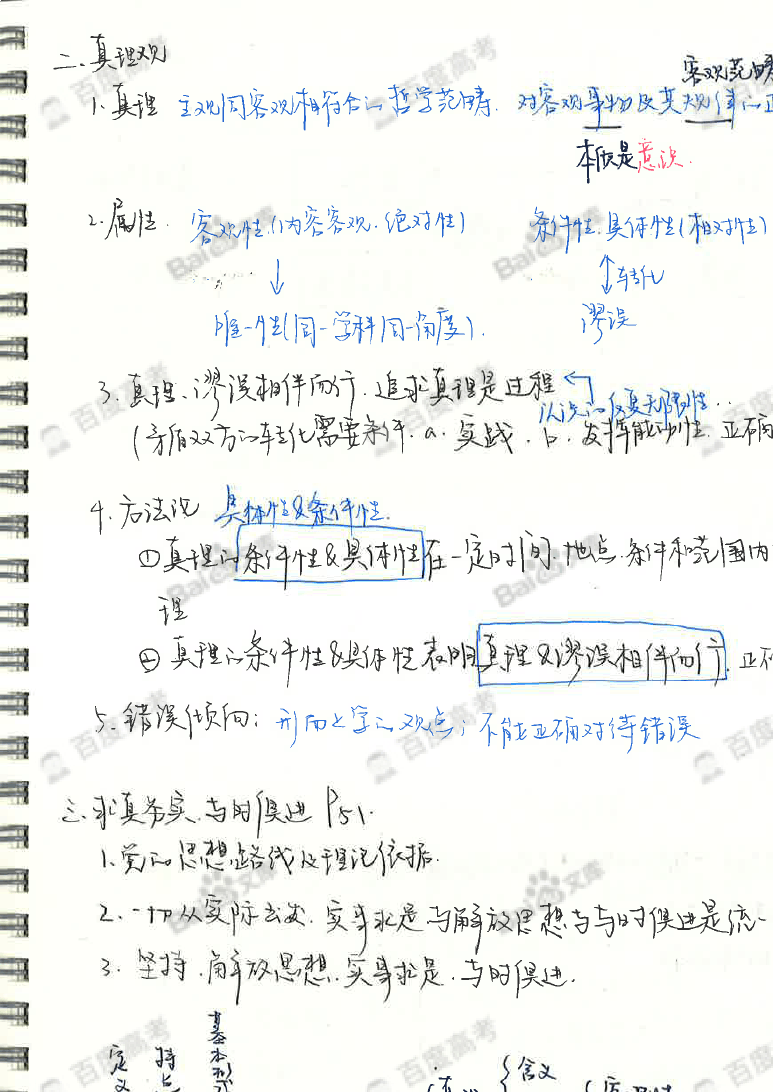 二、真理观
客观范畴
1. 真理 主观同客观相符合的哲学范畴. 对客观事物及其规律的正
本质是意识.
2. 属性. 客观性.(内容客观. 绝对性) 条件性. 具体性(相对性)
转化
唯一性(同一学科同一角度). 谬误
3. 真理、谬误相伴而行. 追求真理是过程
认识的反复无限性...
(矛盾双方的转化需要条件. a. 实践. b. 发挥能动性. 正确
4. 方法论 具体性&条件性.
①真理的条件性&具体性在一定时间.地点.条件和范围内
理
②真理的条件性&具体性表明真理&谬误相伴而行. 正确
5. 错误倾向: 形而上学的观点; 不能正确对待错误
三. 求真务实. 与时俱进 P51.
1. 党的思想路线及理论依据.
2. 一切从实际出发. 实事求是与解放思想与与时俱进是统一
3. 坚持. 解放思想. 实事求是. 与时俱进.
定义 特点 基本形
含义
百度高考
Baidu文库